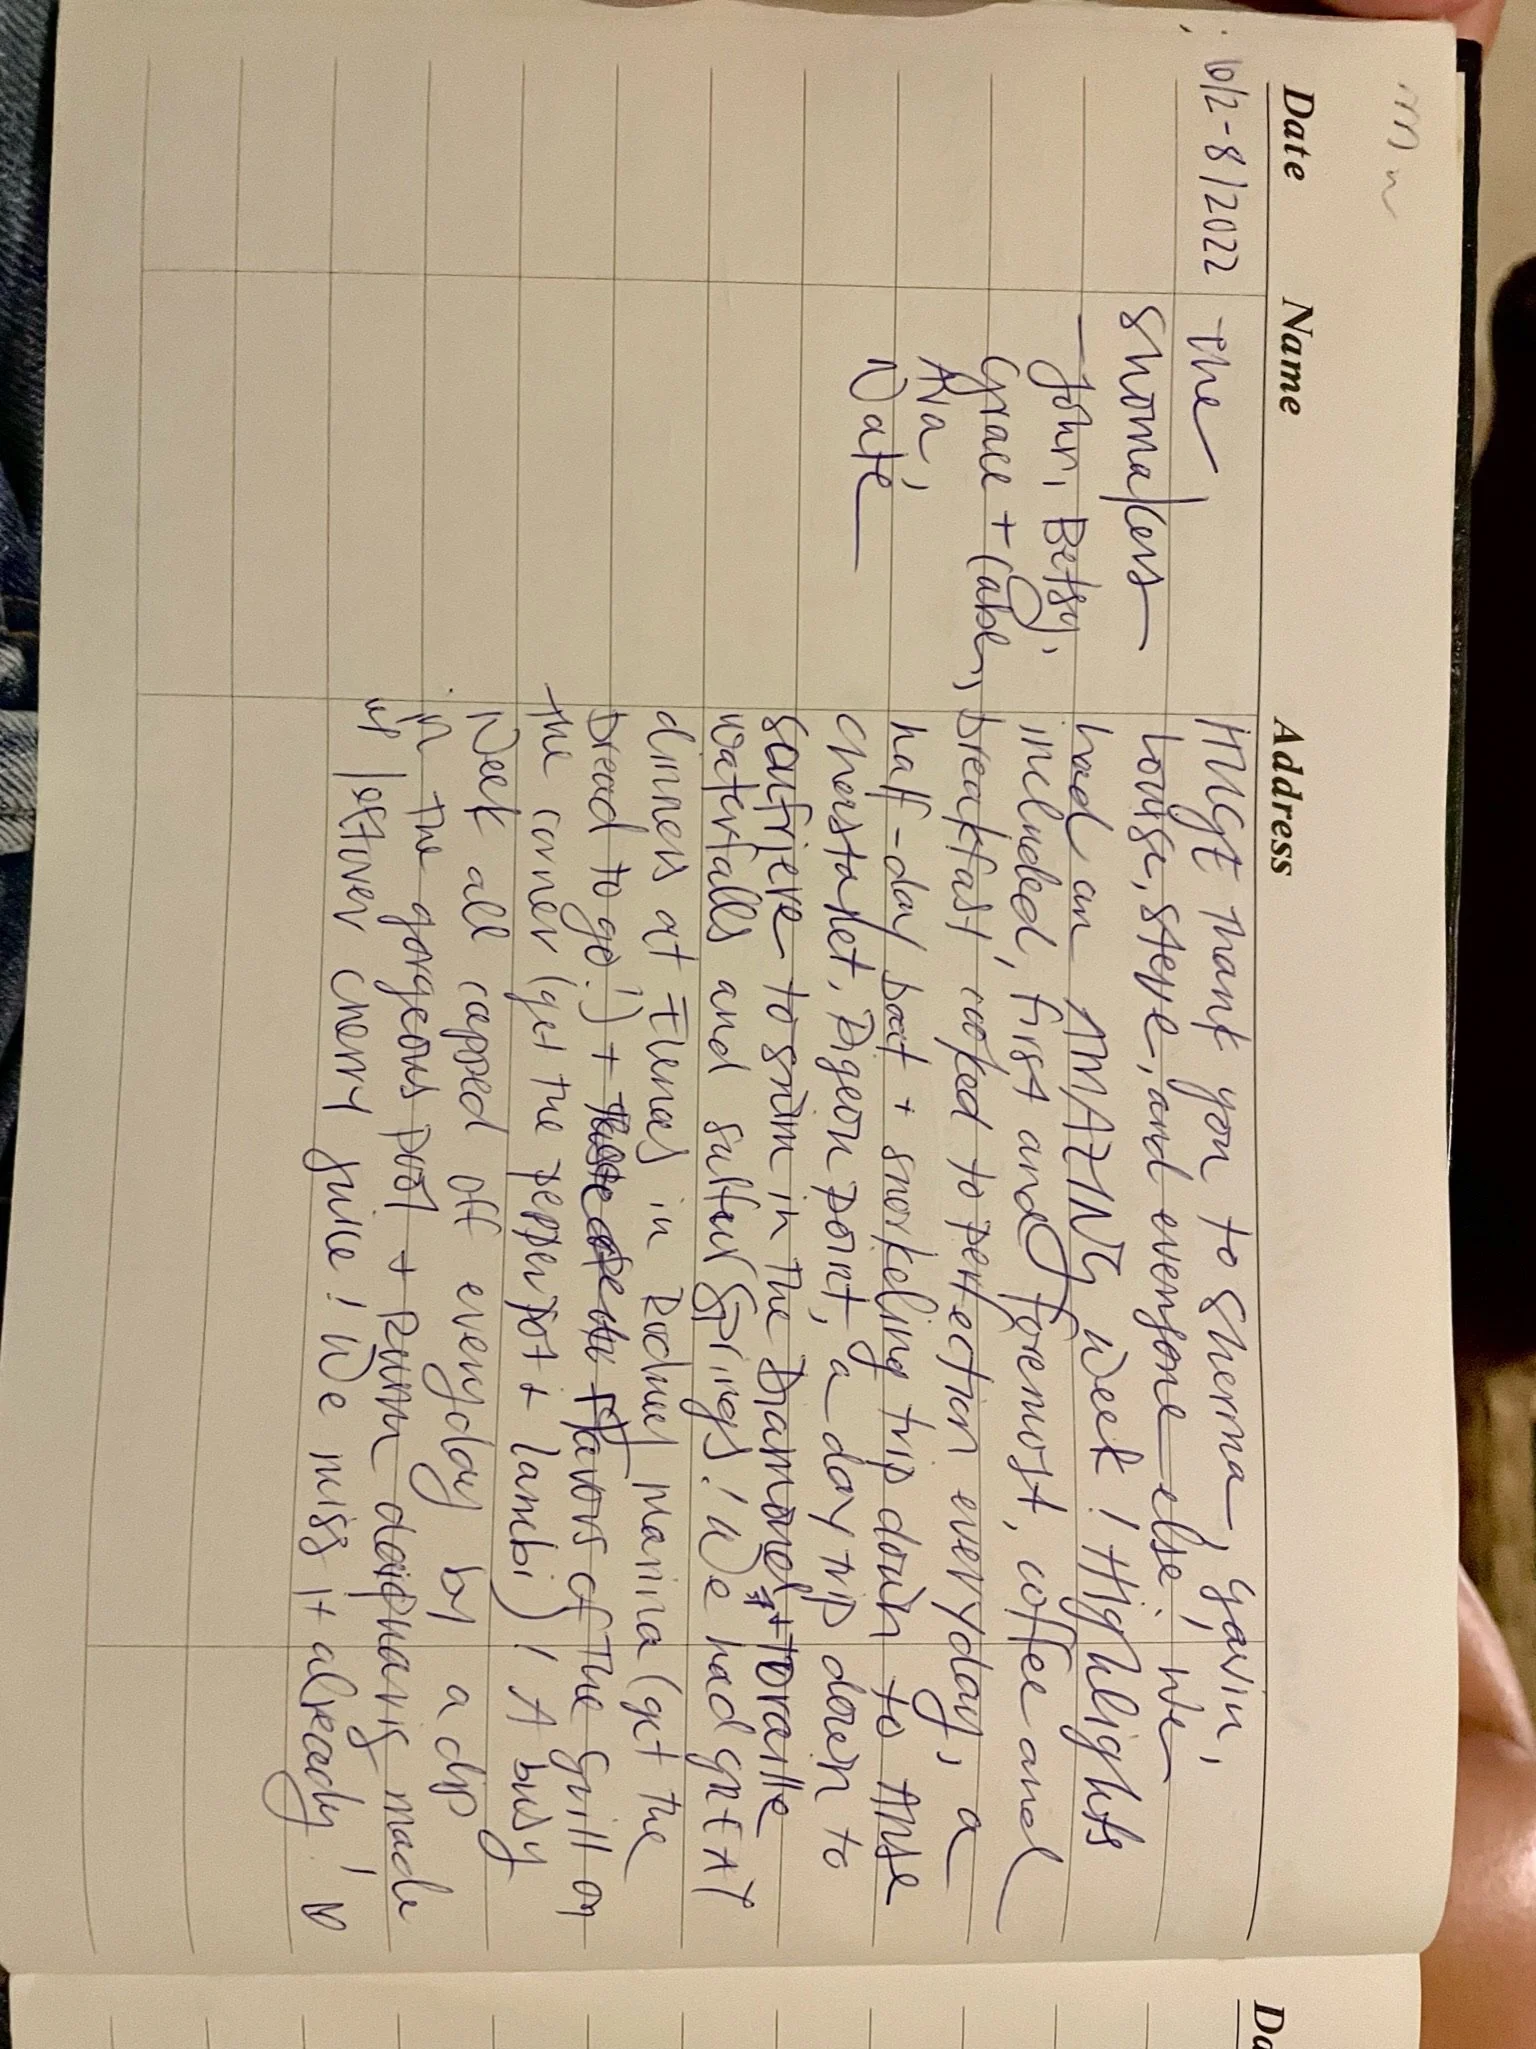 Date Name Address
6/2-8/2022
The
Shomakers
— John, Betsy,
Grace + Caben,
Ava,
Nate —
HUGE thank you to Sherma, Gavin,
Louise, Steve, and everyone else! We
had an AMAZING week! Highlights
included, first and foremost, coffee and
breakfast cooked to perfection everyday, a
half-day boat + snorkeling trip down to Anse
Chastanet, Pigeon point, a day trip down to
Soufriere to swim in the Diamond + Toraille
waterfalls and sulfur Springs! We had GREAT
dinners at Elenas in Rodney Marina (get the
bread to go!) + Flavors of the Grill on
the corner (get the pepperpot + lambi)! A busy
week all capped off everyday by a dip
in the gorgeous pool + rum daiquiris made
w/ leftover cherry juice! We miss it already!
Da